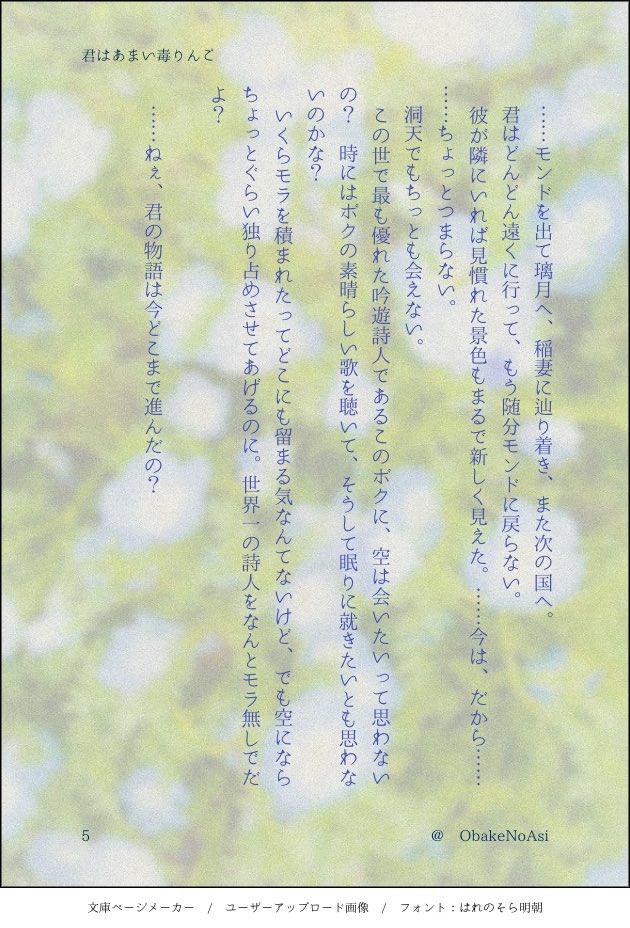 君はあまい毒りんご
……モンドを出て璃月へ、稲妻に辿り着き、また次の国へ。
君はどんどん遠くに行って、もう随分モンドに戻らない。
彼が隣にいれば見慣れた景色もまるで新しく見えた。……今は、だから……
……ちょっとつまらない。
洞天でもちっとも会えない。
この世で最も優れた吟遊詩人であるこのボクに、空は会いたいって思わない
の？　時にはボクの素晴らしい歌を聴いて、そうして眠りに就きたいとも思わな
いのかな？
いくらモラを積まれたってどこにも留まる気なんてないけど、でも空になら
ちょっとぐらい独り占めさせてあげるのに。世界一の詩人をなんとモラ無しでだ
よ？
……ねぇ、君の物語は今どこまで進んだの？
5
@　ObakeNoAsi
文庫ページメーカー　/　ユーザーアップロード画像　/　フォント：はれのそら明朝